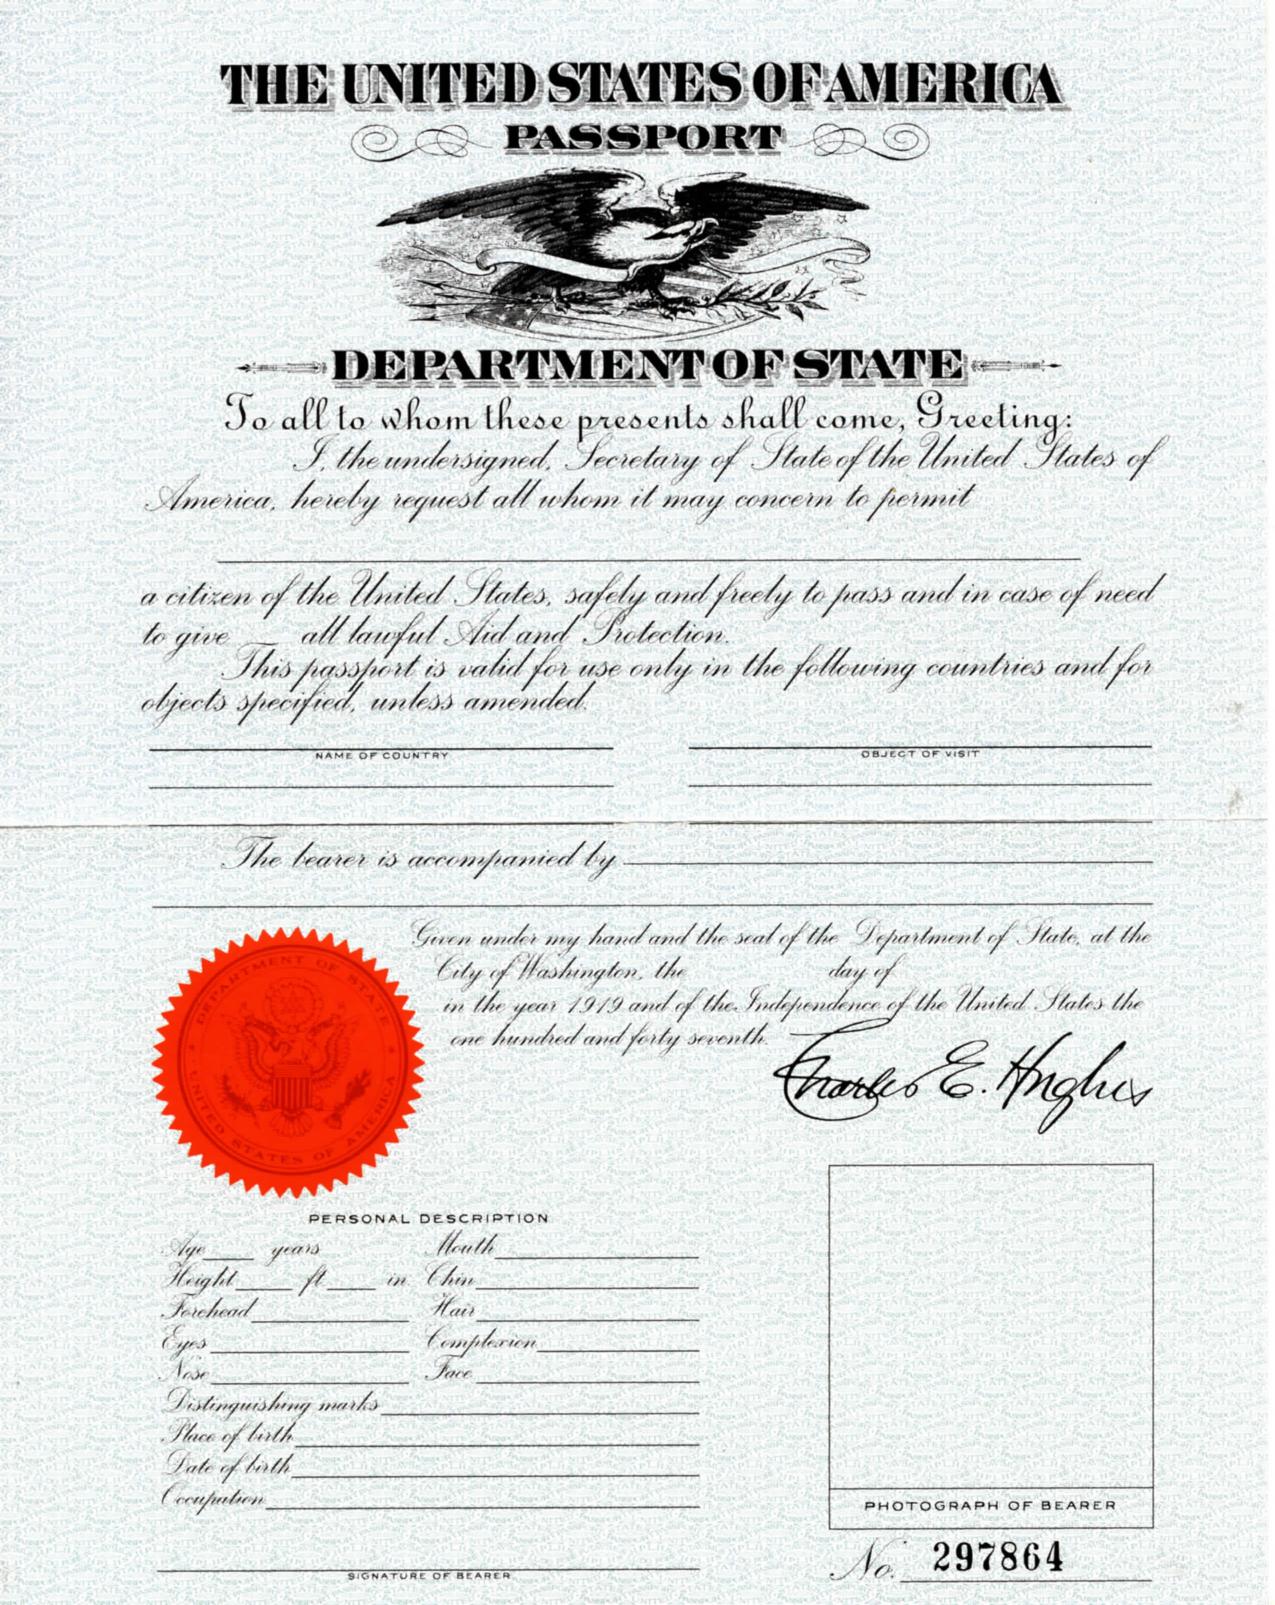 THE UNITED STATES OF AMERICA
PASSPORT
DEPARTMENT OF STATE
To all to whom these presents shall come, Greeting:
I, the undersigned, Secretary of State of the United States of
America, hereby request all whom it may concern to permit
a citizen of the United States, safely and freely to pass and in case of need
to give ___ all lawful Aid and Protection.
This passport is valid for use only in the following countries and for
objects specified, unless amended.
NAME OF COUNTRY OBJECT OF VISIT
The bearer is accompanied by
Given under my hand and the seal of the Department of State, at the
City of Washington, the day of
in the year 1919 and of the Independence of the United States the
one hundred and forty seventh.
Charles E. Hughes
DEPARTMENT OF STATE
UNITED STATES OF AMERICA
PERSONAL DESCRIPTION
Age ___ years Mouth
Height ___ ft ___ in Chin
Forehead Hair
Eyes Complexion
Nose Face
Distinguishing marks
Place of birth
Date of birth
Occupation
SIGNATURE OF BEARER
PHOTOGRAPH OF BEARER
No. 297864